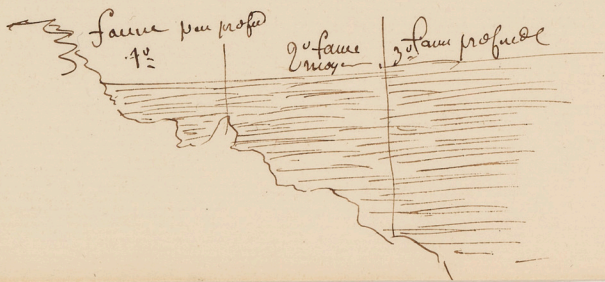 faune peu profd
1º
2º faune
moyen
3º faun profonde